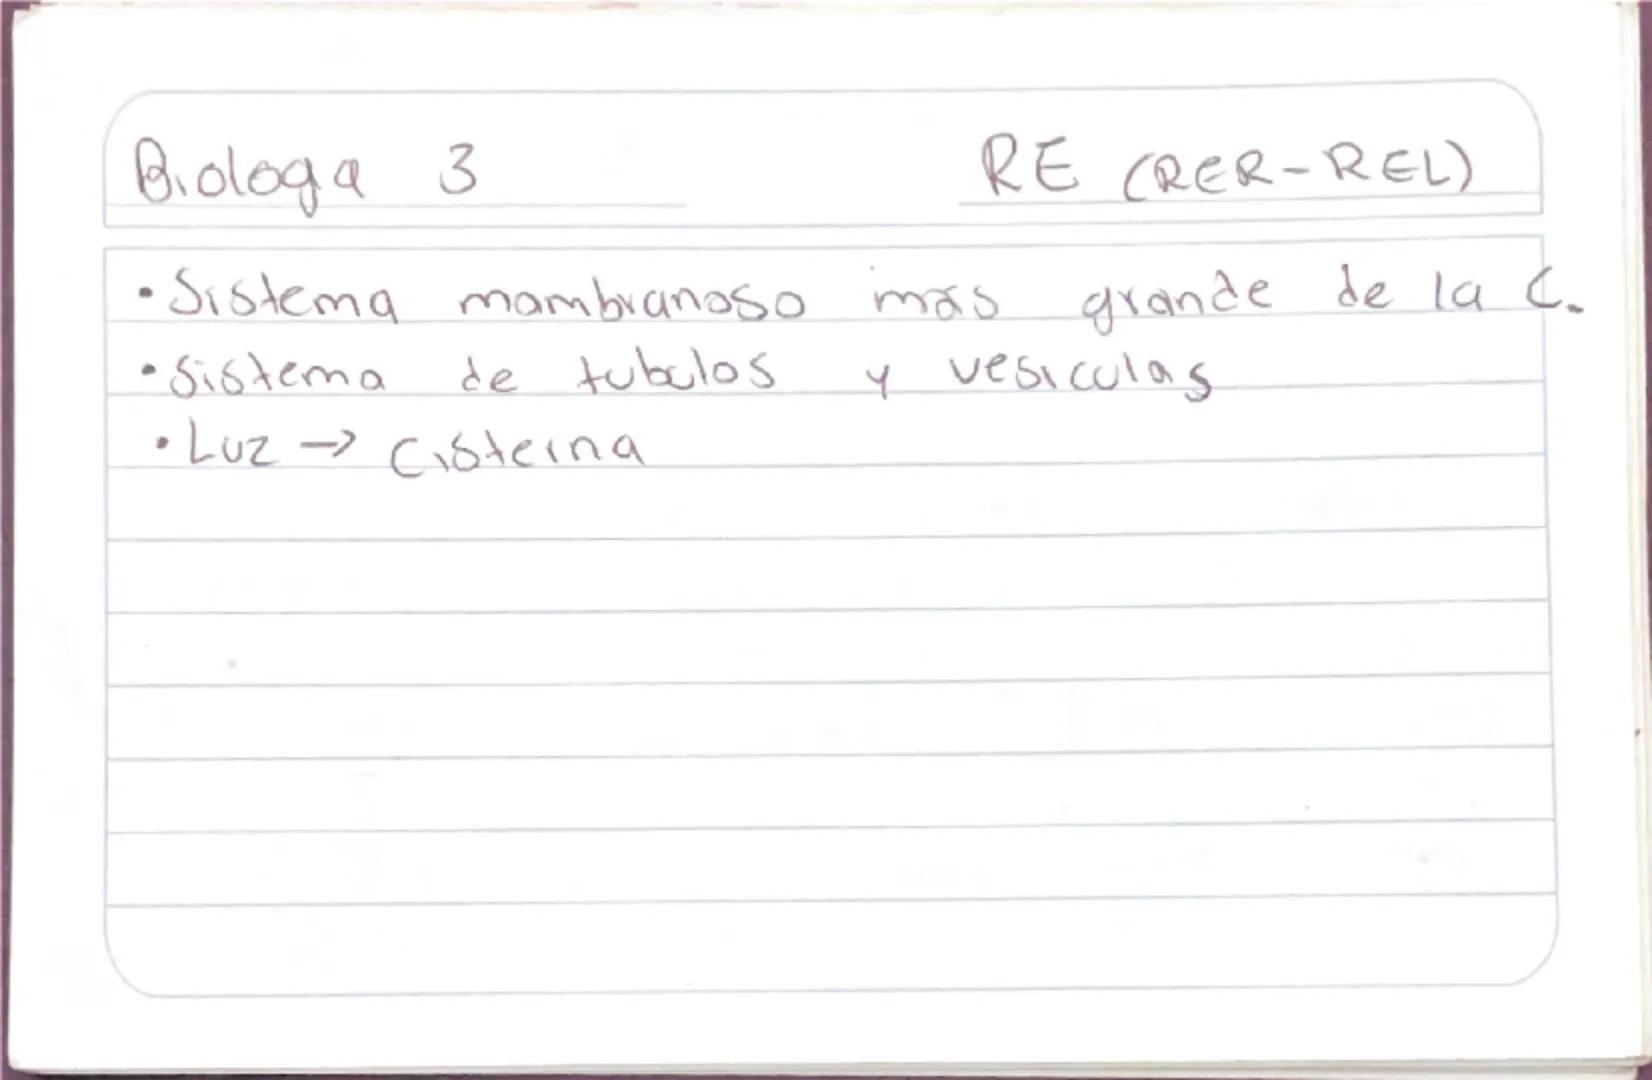 Biologa 3 RE (RER-REL)
• Sistema mambranoso más grande de la C.
• Sistema de tubulos y vesiculas
• Luz → Cisterna